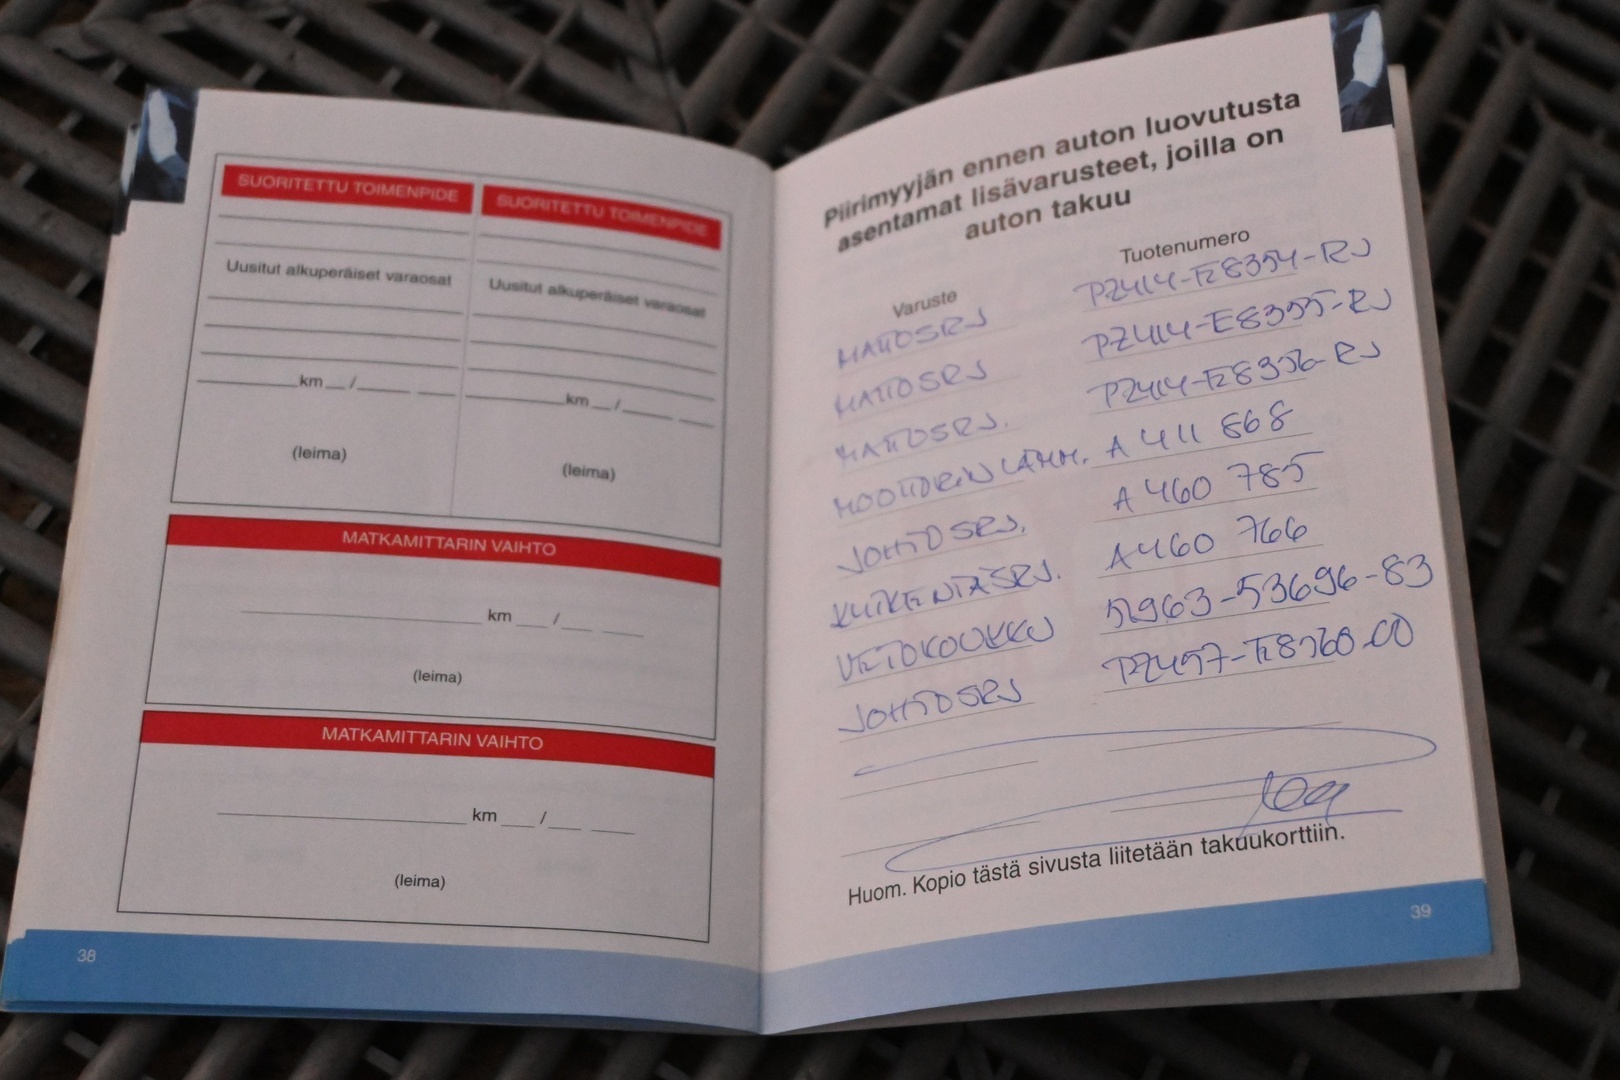 SUORITETTU TOIMENPIDE
Uusitut alkuperäiset varaosat
km /
(leima)
SUORITETTU TOIMENPIDE
Uusitut alkuperäiset varaosat
km /
(leima)
MATKAMITTARIN VAIHTO
km /
(leima)
MATKAMITTARIN VAIHTO
km /
(leima)
38
Piirimyyjän ennen auton luovutusta
asentamat lisävarusteet, joilla on
auton takuu
Varuste Tuotenumero
MATTOSRJ PZ414-E8354-RJ
MATTOSRJ PZ414-E8355-RJ
MATTOSRJ. PZ414-E8356-RJ
MOOTTORIN LÄMM. A 411 868
JOHTOSRJ. A 460 785
KIIKENTÄSRJ. A460 766
VETOKOUKKU 51963-53696-83
JOHTOSRJ PZ457-E8560.00
Huom. Kopio tästä sivusta liitetään takuukorttiin.
39